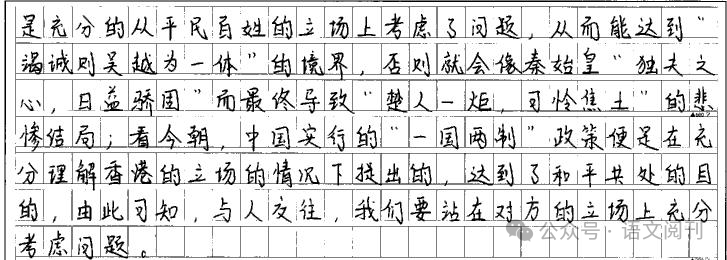 是充分的从平民百姓的立场上考虑了问题，从而能达到“
竭诚则吴越为一体”的境界，否则就会像秦始皇“独夫之
心，日益骄固”而最终导致“楚人一炬，可怜焦土”的悲
惨结局；看今朝，中国实行的“一国两制”政策便是在充
分理解香港的立场的情况下提出的，达到了和平共处的目
的，由此可知，与人交往，我们要站在对方的立场上充分
考虑问题。
公众号·语文阅刊